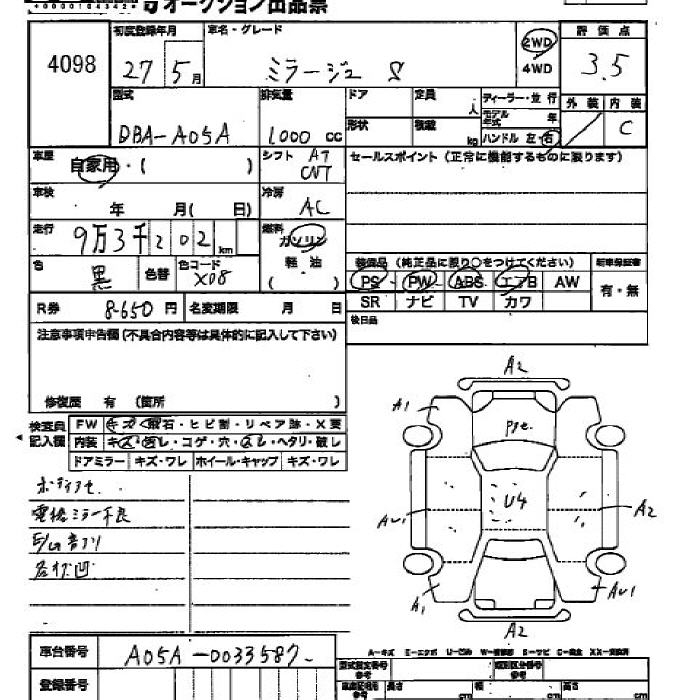 オークション出品票
4098
初度登録年月
27 5月
車名・グレード
ミラージュ S
2WD
4WD
評価点
3.5
型式
DBA-A05A
排気量
1000 CC
ドア 定員
形状 積載 kg
ディーラー・並行
モデル年式 年
ハンドル 左・右
外装 内装
C
車歴
自家用・( )
シフト AT
CVT
セールスポイント(正常に機能するものに限ります)
車検
年 月( 日)
冷房
AC
走行
9万3千202km
燃料
ガソリン
軽油
( )
色
黒
色替
色コード
X08
装備品(純正品に限り○をつけてください)
PS PW ABS エアB AW
SR ナビ TV カワ
有・無
R券 8650円
名変期限 月 日
後日品
注意事項申告欄(不具合内容等は具体的に記入して下さい)
修復歴 有 (箇所 )
検査員記入欄
FW キズ・飛石・ヒビ割・リペア跡・X要
内装 キズ・汚レ・コゲ・穴・スレ・ヘタリ・破レ
ドアミラー キズ・ワレ ホイール・キャップ キズ・ワレ
ボディアセ
電格ミラー不良
A2
A1
pge.
U4
AU1
A2
A1
AU1
A2
車台番号
A05A-0033587
登録番号
A-キズ E-エクボ U-凹み
型式指定番号
類別区分番号
長さ cm 幅 cm 高さ cm